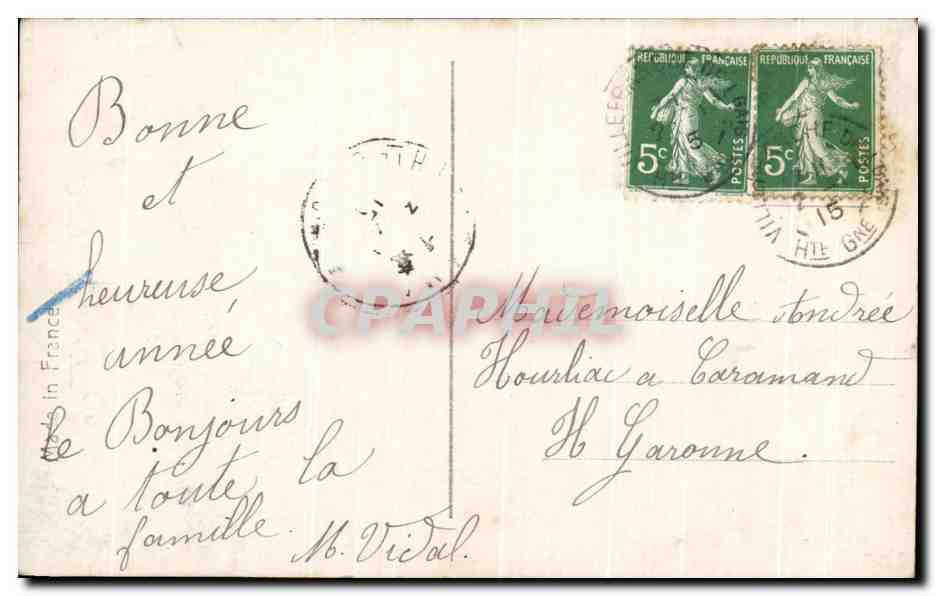 Bonne
et
heureuse
année
le Bonjours
a toute la
famille.
M. Vidal.
Made in France
REPUBLIQUE FRANÇAISE
5c
POSTES
REPUBLIQUE FRANÇAISE
5c
POSTES
2
15
HTE GNE
Mademoiselle Andrée
Hourliac a Caramand
H Garonne.
CPAPHIL